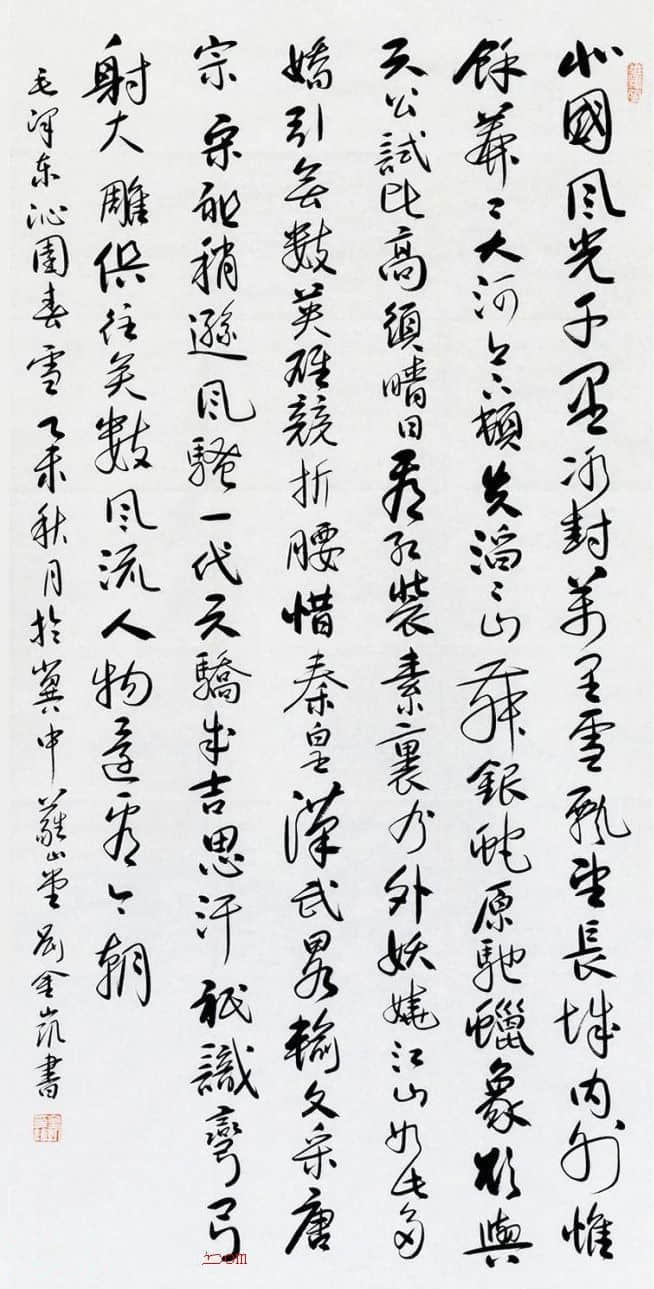 北國風光千里冰封萬里雪飄望長城内外惟
餘莽〻大河上下頓失滔〻山舞銀蛇原馳蠟象欲與
天公試比高須晴日看紅裝素裹分外妖嬈江山如此多
嬌引無數英雄競折腰惜秦皇漢武畧輸文采唐
宗宋祖稍遜風騷一代天驕成吉思汗祇識彎弓
射大雕俱往矣數風流人物還看今朝
毛澤东沁園春雪乙未秋月於冀中山堂劉金凱書
com